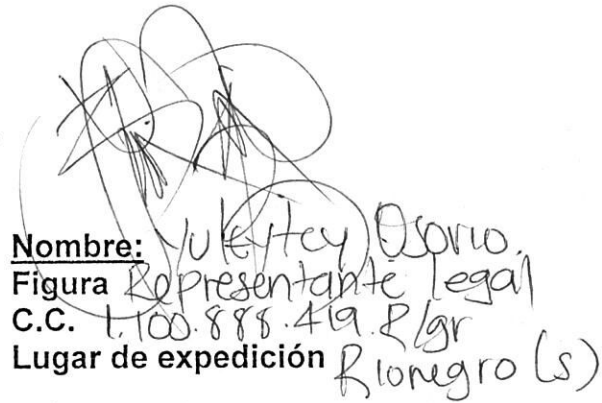 Nombre: Yuleytcy Osorio.
Figura Representante legal
C.C. 1.100.888.419. R/gr
Lugar de expedición Rionegro (s)